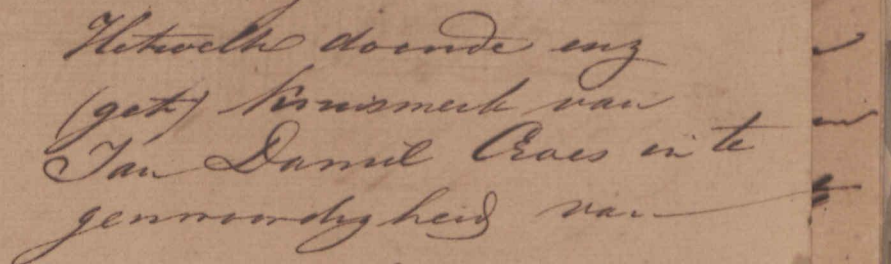 Hetwelk doende enz
(get) Kruismerk van
Jan Daniel Croes in te
genwoordigheid van